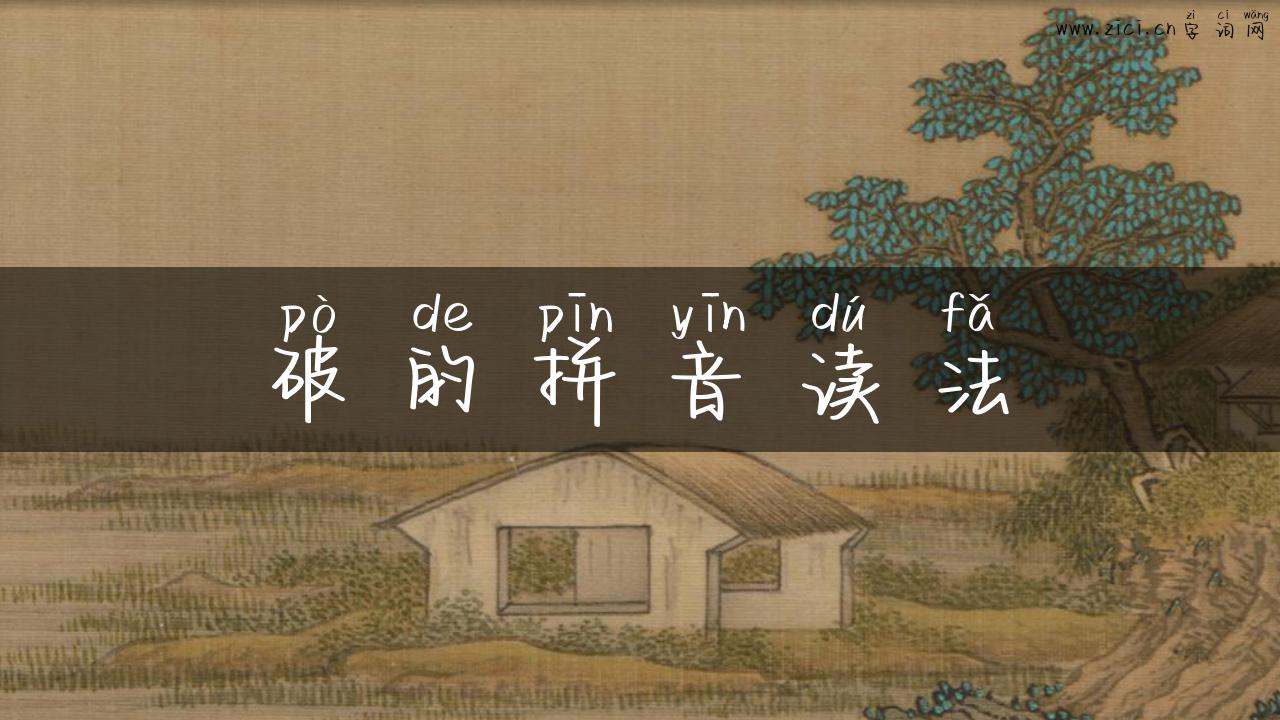 zì cí wǎng
www.zici.cn 字词网
pò de pīn yīn dú fǎ
破的拼音读法